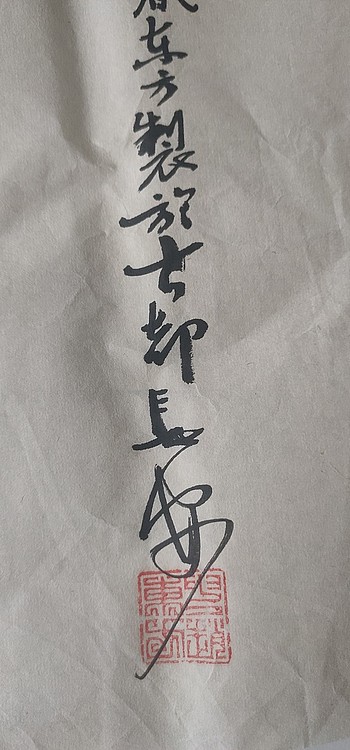 东方製於古都長安